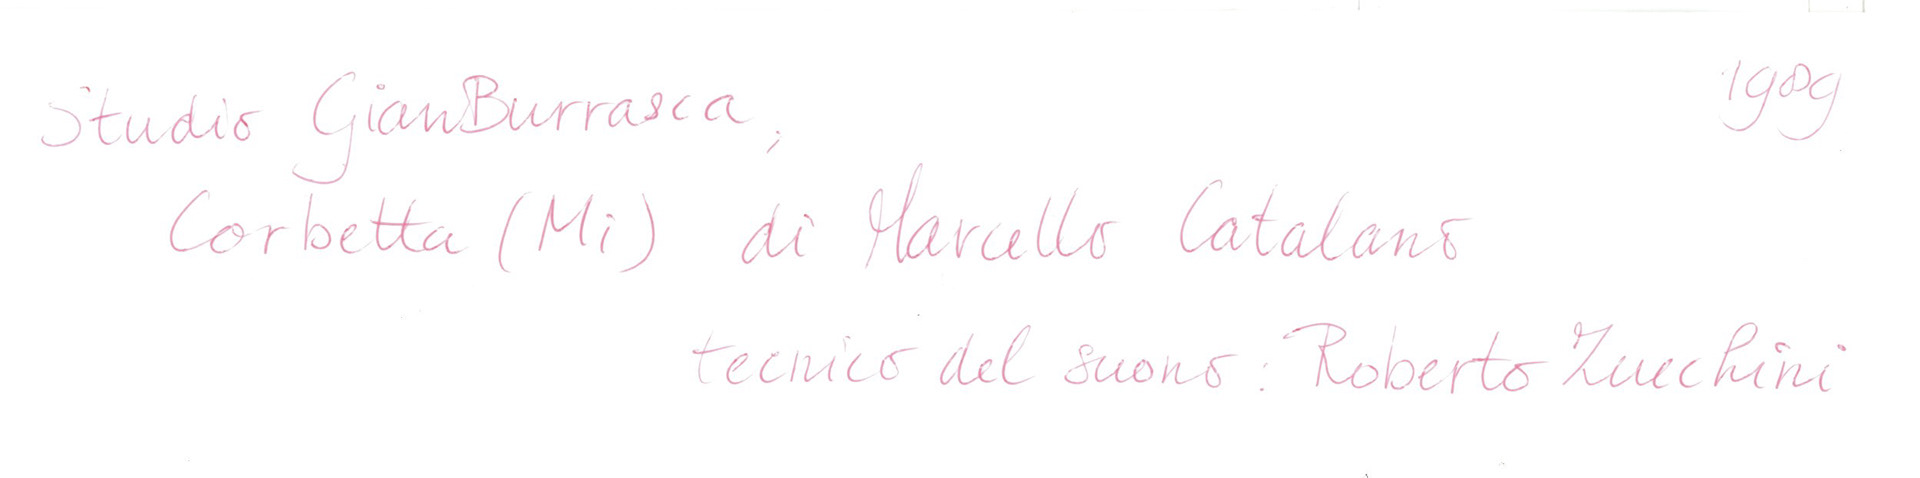 Studio GianBurrasca, 1989
Corbetta (Mi) di Marcello Catalano
tecnico del suono: Roberto Zucchini